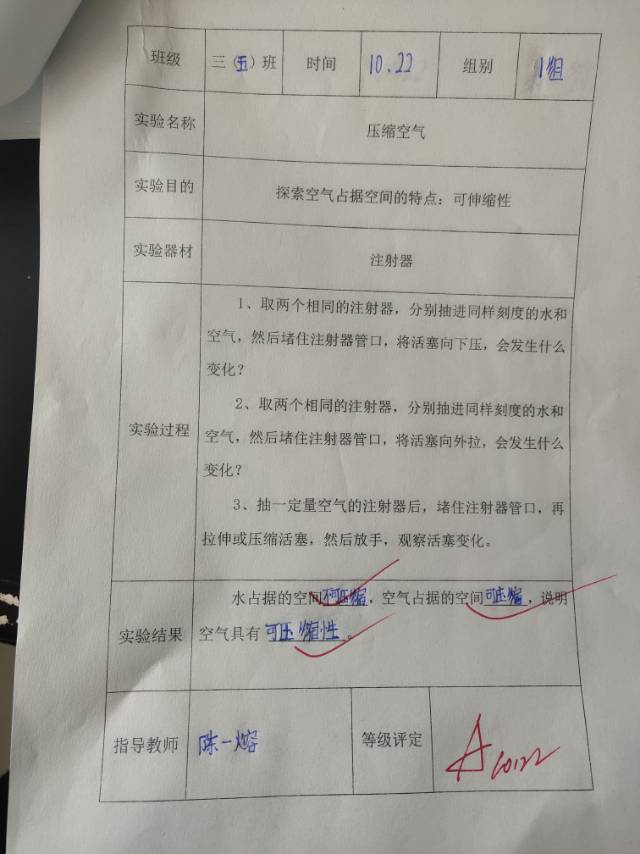 班级 三（五）班 时间 10.22 组别 1组
实验名称 压缩空气
实验目的 探索空气占据空间的特点：可伸缩性
实验器材 注射器
1、取两个相同的注射器，分别抽进同样刻度的水和
空气，然后堵住注射器管口，将活塞向下压，会发生什么
变化？
2、取两个相同的注射器，分别抽进同样刻度的水和
实验过程 空气，然后堵住注射器管口，将活塞向外拉，会发生什么
变化？
3、抽一定量空气的注射器后，堵住注射器管口，再
拉伸或压缩活塞，然后放手，观察活塞变化。
水占据的空间不可压缩，空气占据的空间可压缩，说明
实验结果 空气具有可压缩性。
指导教师 陈一熔 等级评定 A